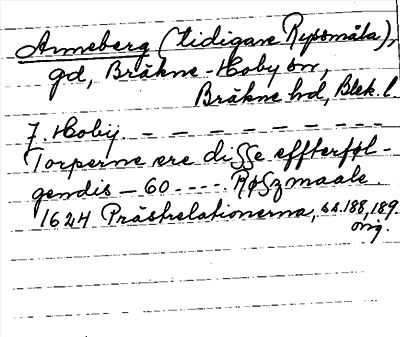 Anneberg (tidigare Rysmåla),
gd, Bräkne-Hoby sn,
Bräkne hd, Blek. l.
7. Hoby. – – – – – – – –
Torperne ere disse effterføl-
gendis – 60 - - - - Røszmaale.
1624 Prästrelationerna, ss. 188, 189.
orig.